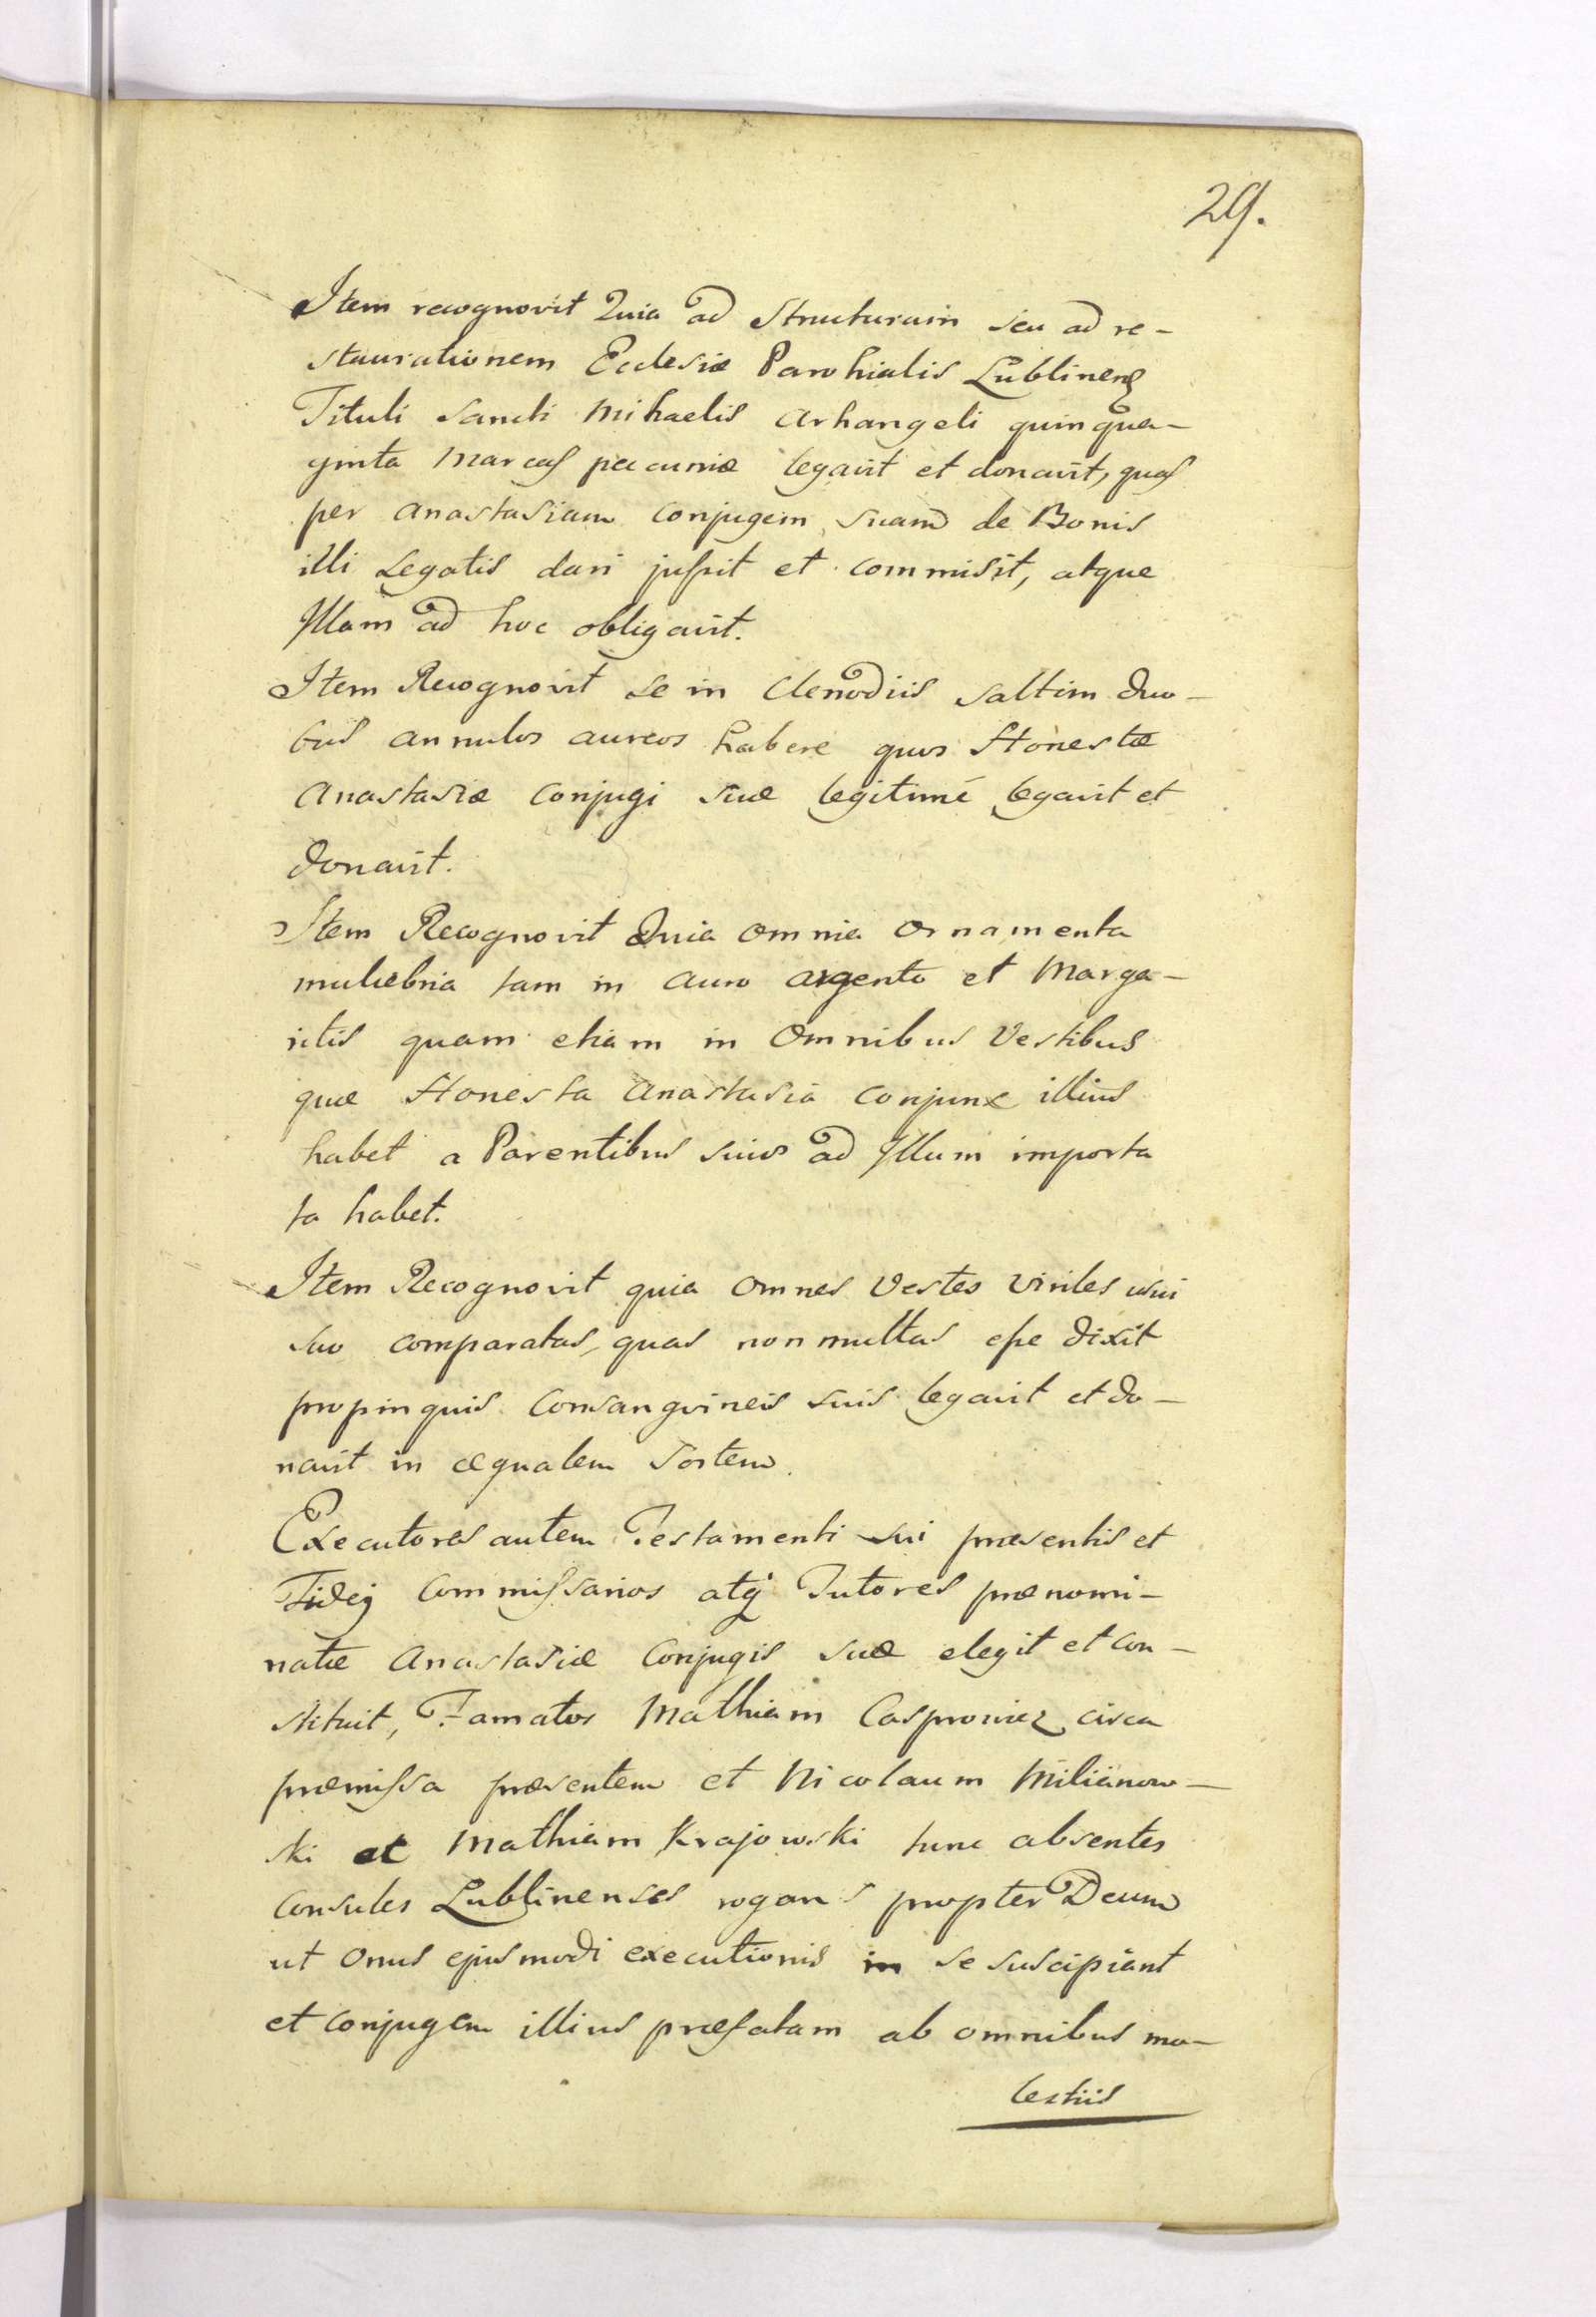 29.
Item recognovit Quia ad Structuram seu ad re-
staurationem Ecclesiæ Parohialis Lublinens
Tituli Sancti Mihaelis Arhangeli quinqua-
ginta Marcas pecuniæ legavit et donavit, quas
per Anastasiam Conjugem suam de Bonis
illi Legatis dari jussit et commisit, atque
Illam ad hoc obligavit.
Item Recognovit se in Clenodiis saltim duo-
bus annulos aureos habere quos Honestæ
Anastasiæ Conjugi suæ legitimé legavit et
donavit.
Item Recognovit Quia omnia Ornamenta
muliebria tam in Auro Argento et Marga-
ritis quam etiam in Omnibus Vestibus
quæ Honesta Anastasia Conjunx illius
habet a Parentibus suis ad Illum importa
ta habet.
Item Recognovit quia omnes Vestes viriles usui
suo comparatas, quas non multas esse dixit
propinquis Consangvineis suis legavit et do-
navit in æqualem Sortem.
Executores autem Testamenti sui præsentis et
Fidej Commissarios atq Tutores prænomi-
natæ Anastasiæ Conjugis suæ elegit et con-
stituit, Famatos Mathiam Casprowicz circa
præmissa præsentem et Nicolaum Milianow-
ski et Mathiam Krajowski tunc absentes
Consules Lublinenses rogans propter Deum
ut Onus ejusmodi executionis in se suscipiant
et Conjugem illius præfatam ab omnibus mo-
lestiis